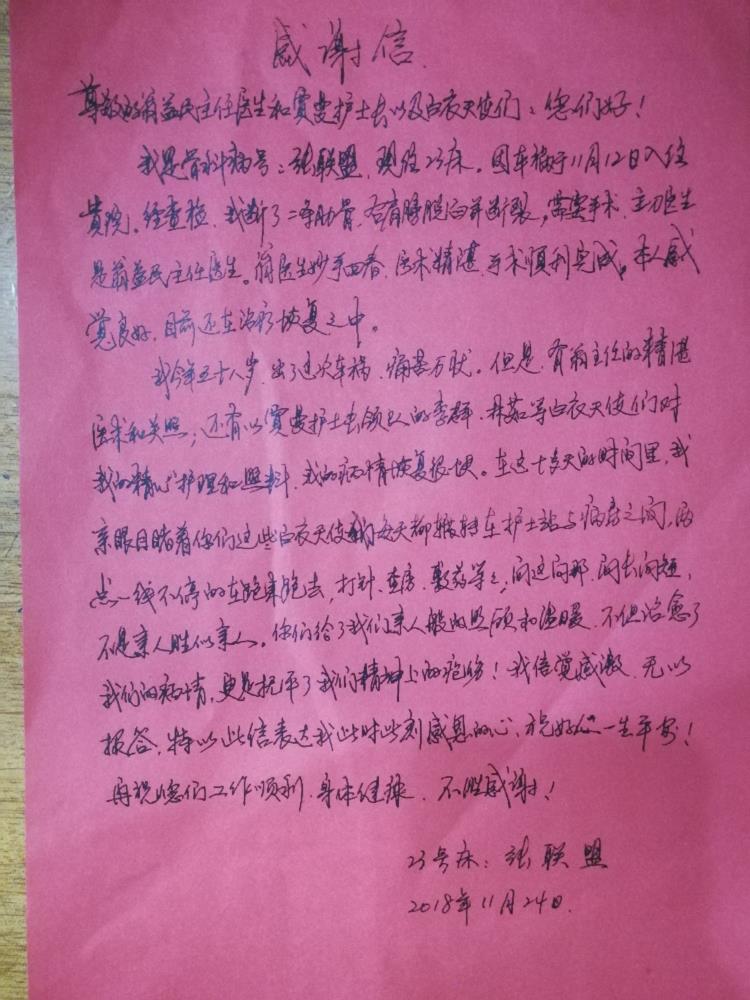 感谢信
尊敬的翁益民主任医生和贾曼护士长以及白衣天使们：您们好！
我是骨科病号：张联盟，现住23床。因车祸于11月12日入住
贵院。经查检，我断了二条肋骨，右肩膀脱臼并断裂，需要手术，主刀医生
是翁益民主任医生。翁医生妙手回春，医术精湛，手术顺利完成。本人感
觉良好，目前还在治疗恢复之中。
我今年五十八岁，出了这次车祸，痛苦万状。但是，有翁主任的精湛
医术和关照；还有以贾曼护士长领队的李群、林茹等白衣天使们对
我的精心护理和照料，我的病情恢复很快。在这十多天的时间里，我
亲眼目睹着你们这些白衣天使们每天都辗转在护士站与病房之间，两
点一线不停的在跑来跑去，打针、查房、敷药等等，问这问那，问长问短，
不是亲人胜似亲人。你们给了我们亲人般的照顾和温暖，不但治愈了
我们的病情，更是抚平了我们精神上的疮伤！我倍觉感激，无以
报答，特以此信表达我此时此刻感恩的心，祝好人一生平安！
再祝您们工作顺利，身体健康，不胜感谢！
23号床：张联盟
2018年11月24日.